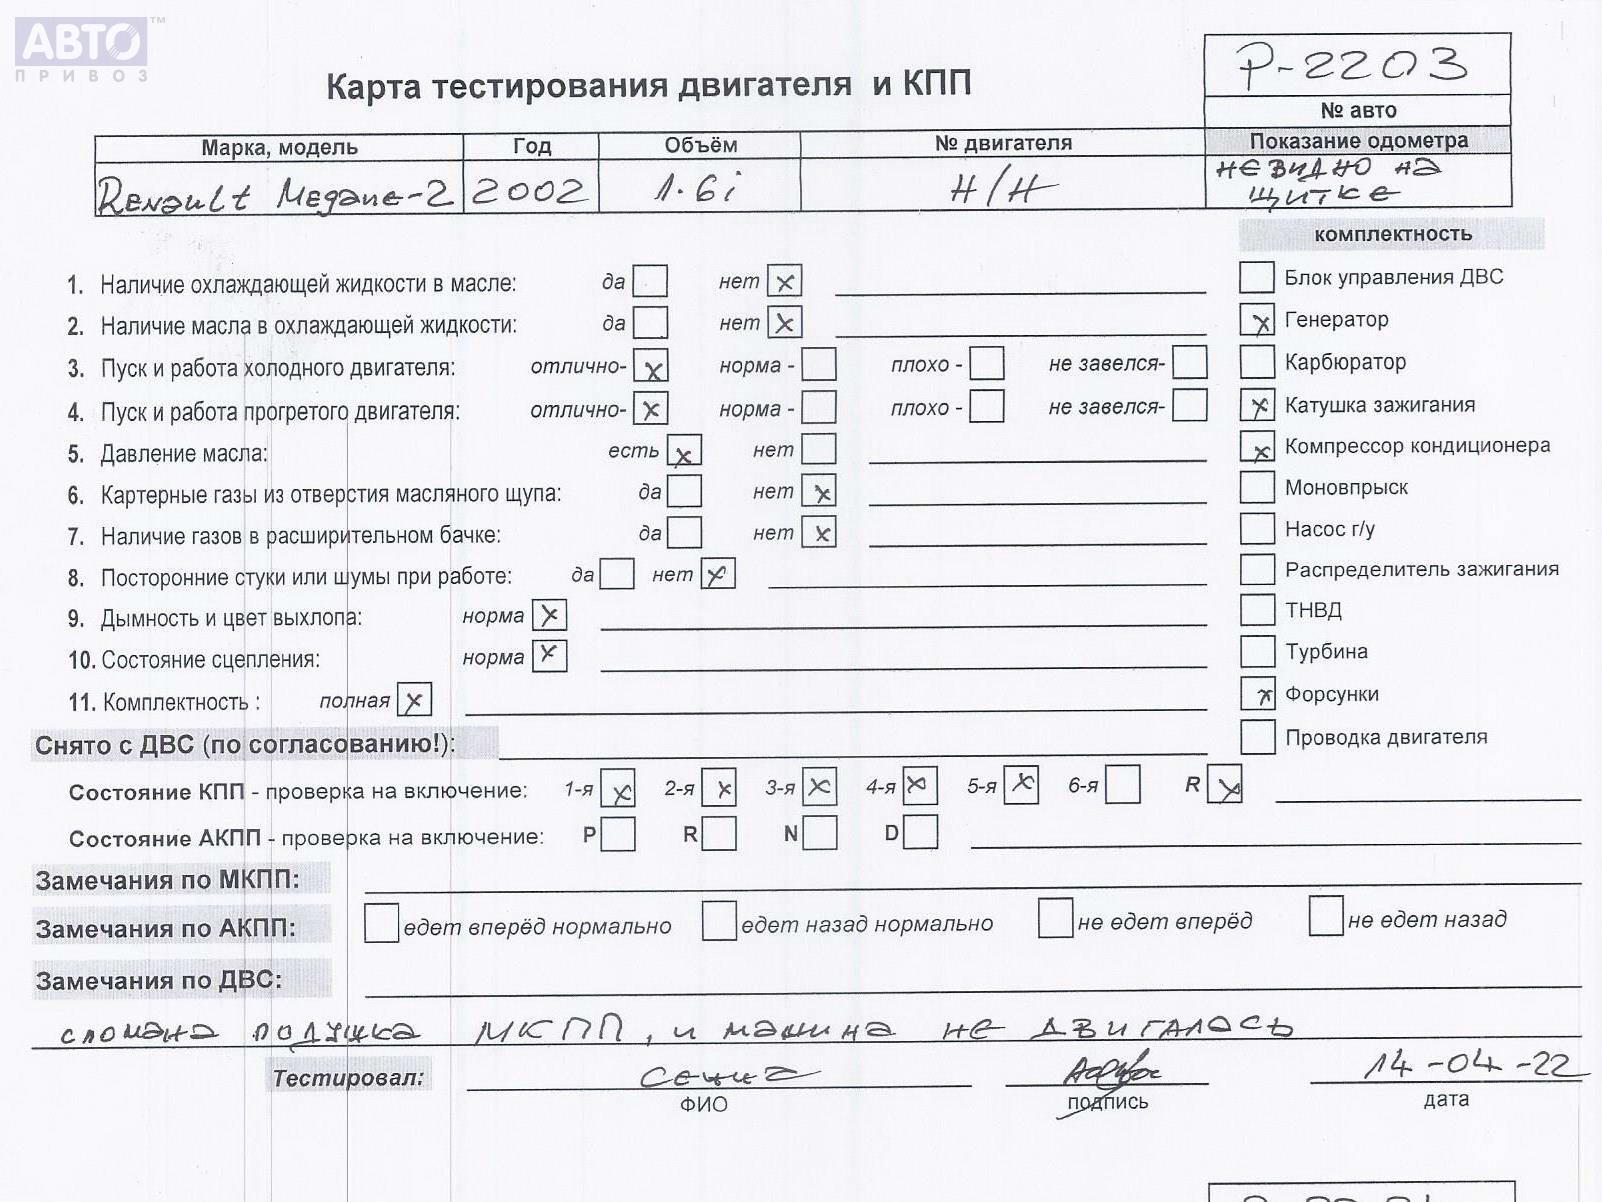 АВТО™
ПРИВОЗ
Карта тестирования двигателя и КПП
P-2203
№ авто
Марка, модель Год Объём № двигателя Показание одометра
Renault Megane-2 2002 1.6i Н/Н НЕ ВИДНО НА
ЩИТКЕ
комплектность
1. Наличие охлаждающей жидкости в масле: да нет x
Блок управления ДВС
2. Наличие масла в охлаждающей жидкости: да нет x
x Генератор
3. Пуск и работа холодного двигателя: отлично- x норма - плохо - не завелся-
Карбюратор
4. Пуск и работа прогретого двигателя: отлично- x норма - плохо - не завелся-
x Катушка зажигания
5. Давление масла: есть x нет
x Компрессор кондиционера
6. Картерные газы из отверстия масляного щупа: да нет x
Моновпрыск
7. Наличие газов в расширительном бачке: да нет x
Насос г/у
8. Посторонние стуки или шумы при работе: да нет x
Распределитель зажигания
9. Дымность и цвет выхлопа: норма x
ТНВД
10. Состояние сцепления: норма x
Турбина
11. Комплектность : полная x
x Форсунки
Снято с ДВС (по согласованию!):
Проводка двигателя
Состояние КПП - проверка на включение: 1-я x 2-я x 3-я x 4-я x 5-я x 6-я R x
Состояние АКПП - проверка на включение: P R N D
Замечания по МКПП:
Замечания по АКПП: едет вперёд нормально едет назад нормально не едет вперёд не едет назад
Замечания по ДВС:
сломана подушка МКПП, и машина не двигалась
Тестировал: 14-04-22
ФИО подпись дата